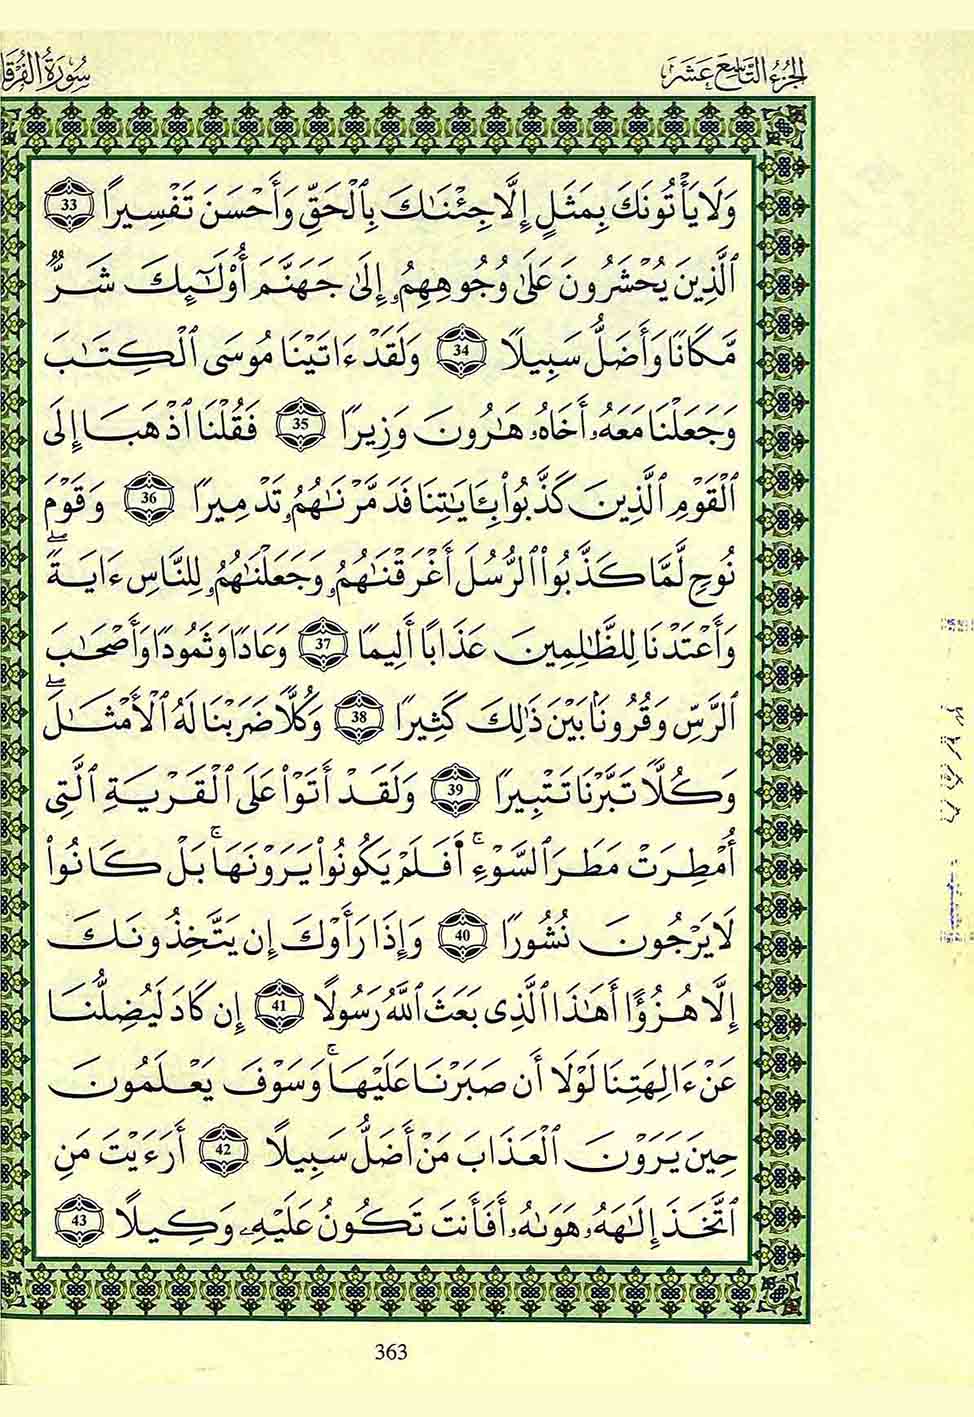 الجزء التاسع عشر
سورة الفرقا
وَلَا يَأْتُونَكَ بِمَثَلٍ إِلَّا جِئْنَٰكَ بِٱلْحَقِّ وَأَحْسَنَ تَفْسِيرًا 33
ٱلَّذِينَ يُحْشَرُونَ عَلَىٰ وُجُوهِهِمُۥٓ إِلَىٰ جَهَنَّمَ أُوْلَٰٓئِكَ شَرٌّ
مَّكَانًا وَأَضَلُّ سَبِيلًا 34 وَلَقَدْ ءَاتَيْنَا مُوسَى ٱلْكِتَٰبَ
وَجَعَلْنَا مَعَهُۥٓ أَخَاهُ هَٰرُونَ وَزِيرًا 35 فَقُلْنَا ٱذْهَبَا إِلَى
ٱلْقَوْمِ ٱلَّذِينَ كَذَّبُواْ بِـَٔايَٰتِنَا فَدَمَّرْنَٰهُمُۥ تَدْمِيرًا 36 وَقَوْمَ
نُوحٍ لَّمَّا كَذَّبُواْ ٱلرُّسُلَ أَغْرَقْنَٰهُمُۥ وَجَعَلْنَٰهُمُۥ لِلنَّاسِ ءَايَةً ۖ
وَأَعْتَدْنَا لِلظَّٰلِمِينَ عَذَابًا أَلِيمًا 37 وَعَادًا وَثَمُودًا وَأَصْحَٰبَ
ٱلرَّسِّ وَقُرُونًۢا بَيْنَ ذَٰلِكَ كَثِيرًا 38 وَكُلًّا ضَرَبْنَا لَهُ ٱلْأَمْثَٰلَ ۖ
وَكُلًّا تَبَّرْنَا تَتْبِيرًا 39 وَلَقَدْ أَتَوْاْ عَلَى ٱلْقَرْيَةِ ٱلَّتِى
أُمْطِرَتْ مَطَرَ ٱلسَّوْءِ ۚ أَفَلَمْ يَكُونُواْ يَرَوْنَهَا ۚ بَلْ كَانُواْ
لَا يَرْجُونَ نُشُورًا 40 وَإِذَا رَأَوْكَ إِن يَتَّخِذُونَكَ
إِلَّا هُزُؤًا أَهَٰذَا ٱلَّذِى بَعَثَ ٱللَّهُ رَسُولًا 41 إِن كَادَ لَيُضِلُّنَا
عَنْ ءَالِهَتِنَا لَوْلَا أَن صَبَرْنَا عَلَيْهَا ۚ وَسَوْفَ يَعْلَمُونَ
حِينَ يَرَوْنَ ٱلْعَذَابَ مَنْ أَضَلُّ سَبِيلًا 42 أَرَءَيْتَ مَنِ
ٱتَّخَذَ إِلَٰهَهُۥ هَوَىٰهُۥٓ أَفَأَنتَ تَكُونُ عَلَيْهِۦ وَكِيلًا 43
363